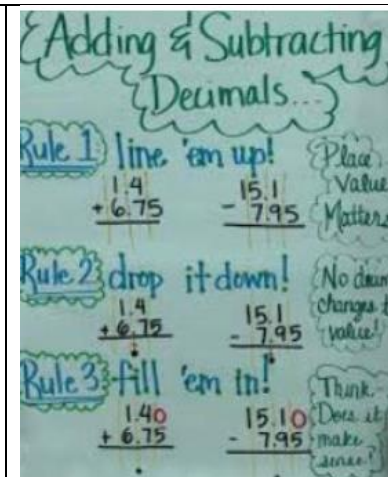 Adding & Subtracting
Decimals...
Rule 1 line 'em up!
1.4
+ 6.75
15.1
- 7.95
Place
Value
Matters
Rule 2 drop it down!
1.4
+ 6.75
.
15.1
- 7.95
.
No
changes
value!
Rule 3 fill 'em in!
1.40
+ 6.75
.
15.10
- 7.95
.
Think.
Does it
make
sense?